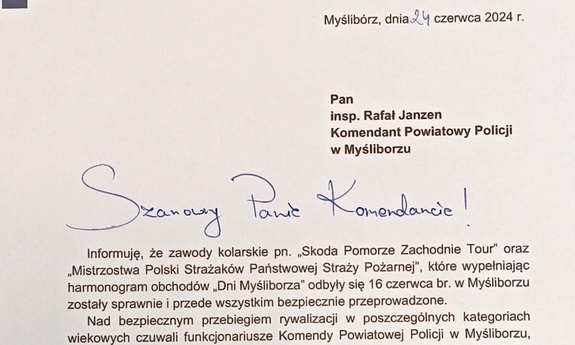 Myślibórz, dnia 24 czerwca 2024 r.
Pan
insp. Rafał Janzen
Komendant Powiatowy Policji
w Myśliborzu
Szanowny Panie Komendancie!
Informuję, że zawody kolarskie pn. „Skoda Pomorze Zachodnie Tour” oraz
„Mistrzostwa Polski Strażaków Państwowej Straży Pożarnej”, które wypełniając
harmonogram obchodów „Dni Myśliborza” odbyły się 16 czerwca br. w Myśliborzu
zostały sprawnie i przede wszystkim bezpiecznie przeprowadzone.
Nad bezpiecznym przebiegiem rywalizacji w poszczególnych kategoriach
wiekowych czuwali funkcjonariusze Komendy Powiatowej Policji w Myśliborzu,